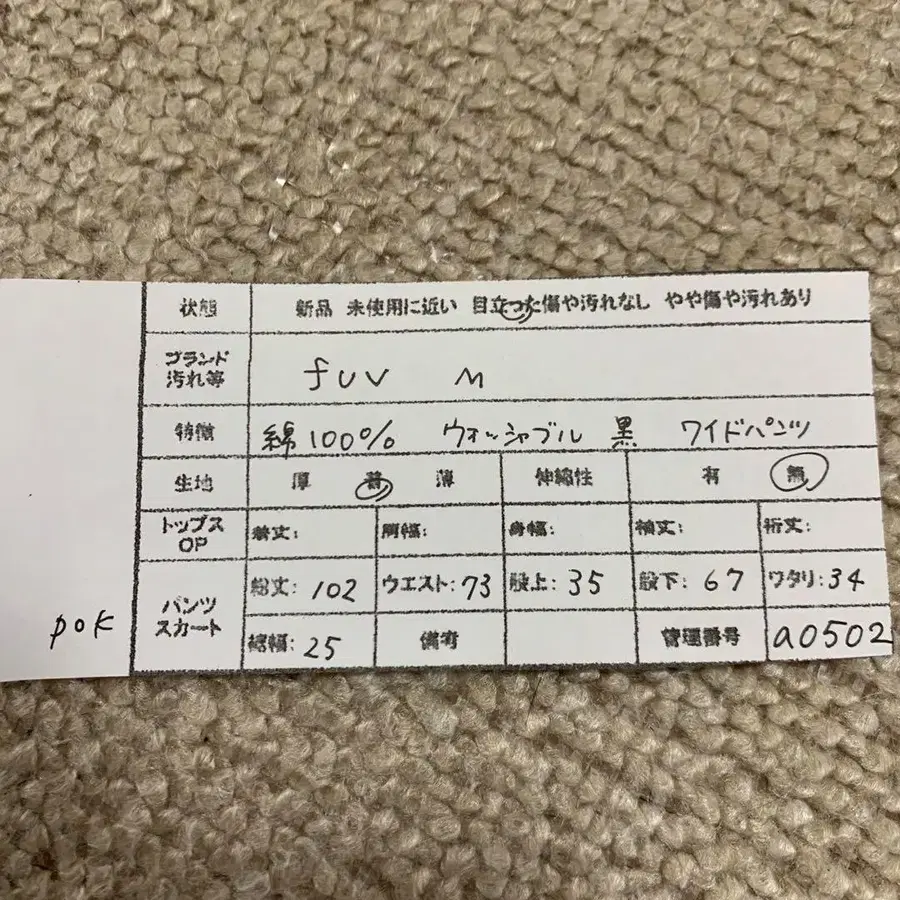 状態 新品 未使用に近い 目立った傷や汚れなし やや傷や汚れあり
ブランド
汚れ等 fuv M
特徴 綿100% ウォッシャブル 黒 ワイドパンツ
生地 厚 普 薄 伸縮性 有 無
トップス
OP 着丈: 肩幅: 身幅: 袖丈: 裄丈:
パンツ
スカート 総丈: 102 ウエスト: 73 股上: 35 股下: 67 ワタリ: 34
裾幅: 25 備考 管理番号 a0502
pok